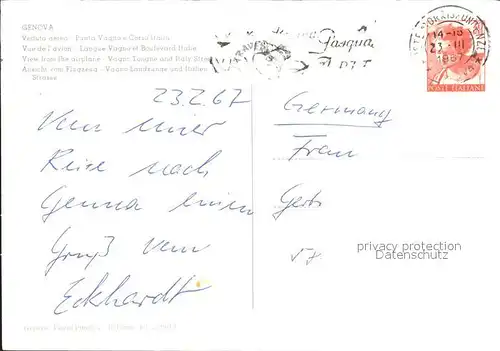 GENOVA
Veduta aerea - Punta Vagno e Corso Italia
Vue de l'avion - Langue Vagno et Boulevard Italie
View from the airplane - Vagno Tongue and Italy Street
Ansicht vom Flugzeug - Vagno Landzunge und Italien
Strasse
Pasqua
14-18
23.III
1967
POSTE ITALIANE
23.2.67
Von einer
Reise nach
Genua einen
Gruß von
Eckhardt
Germany
Frau
Gerb
privacy protection
Datenschutz